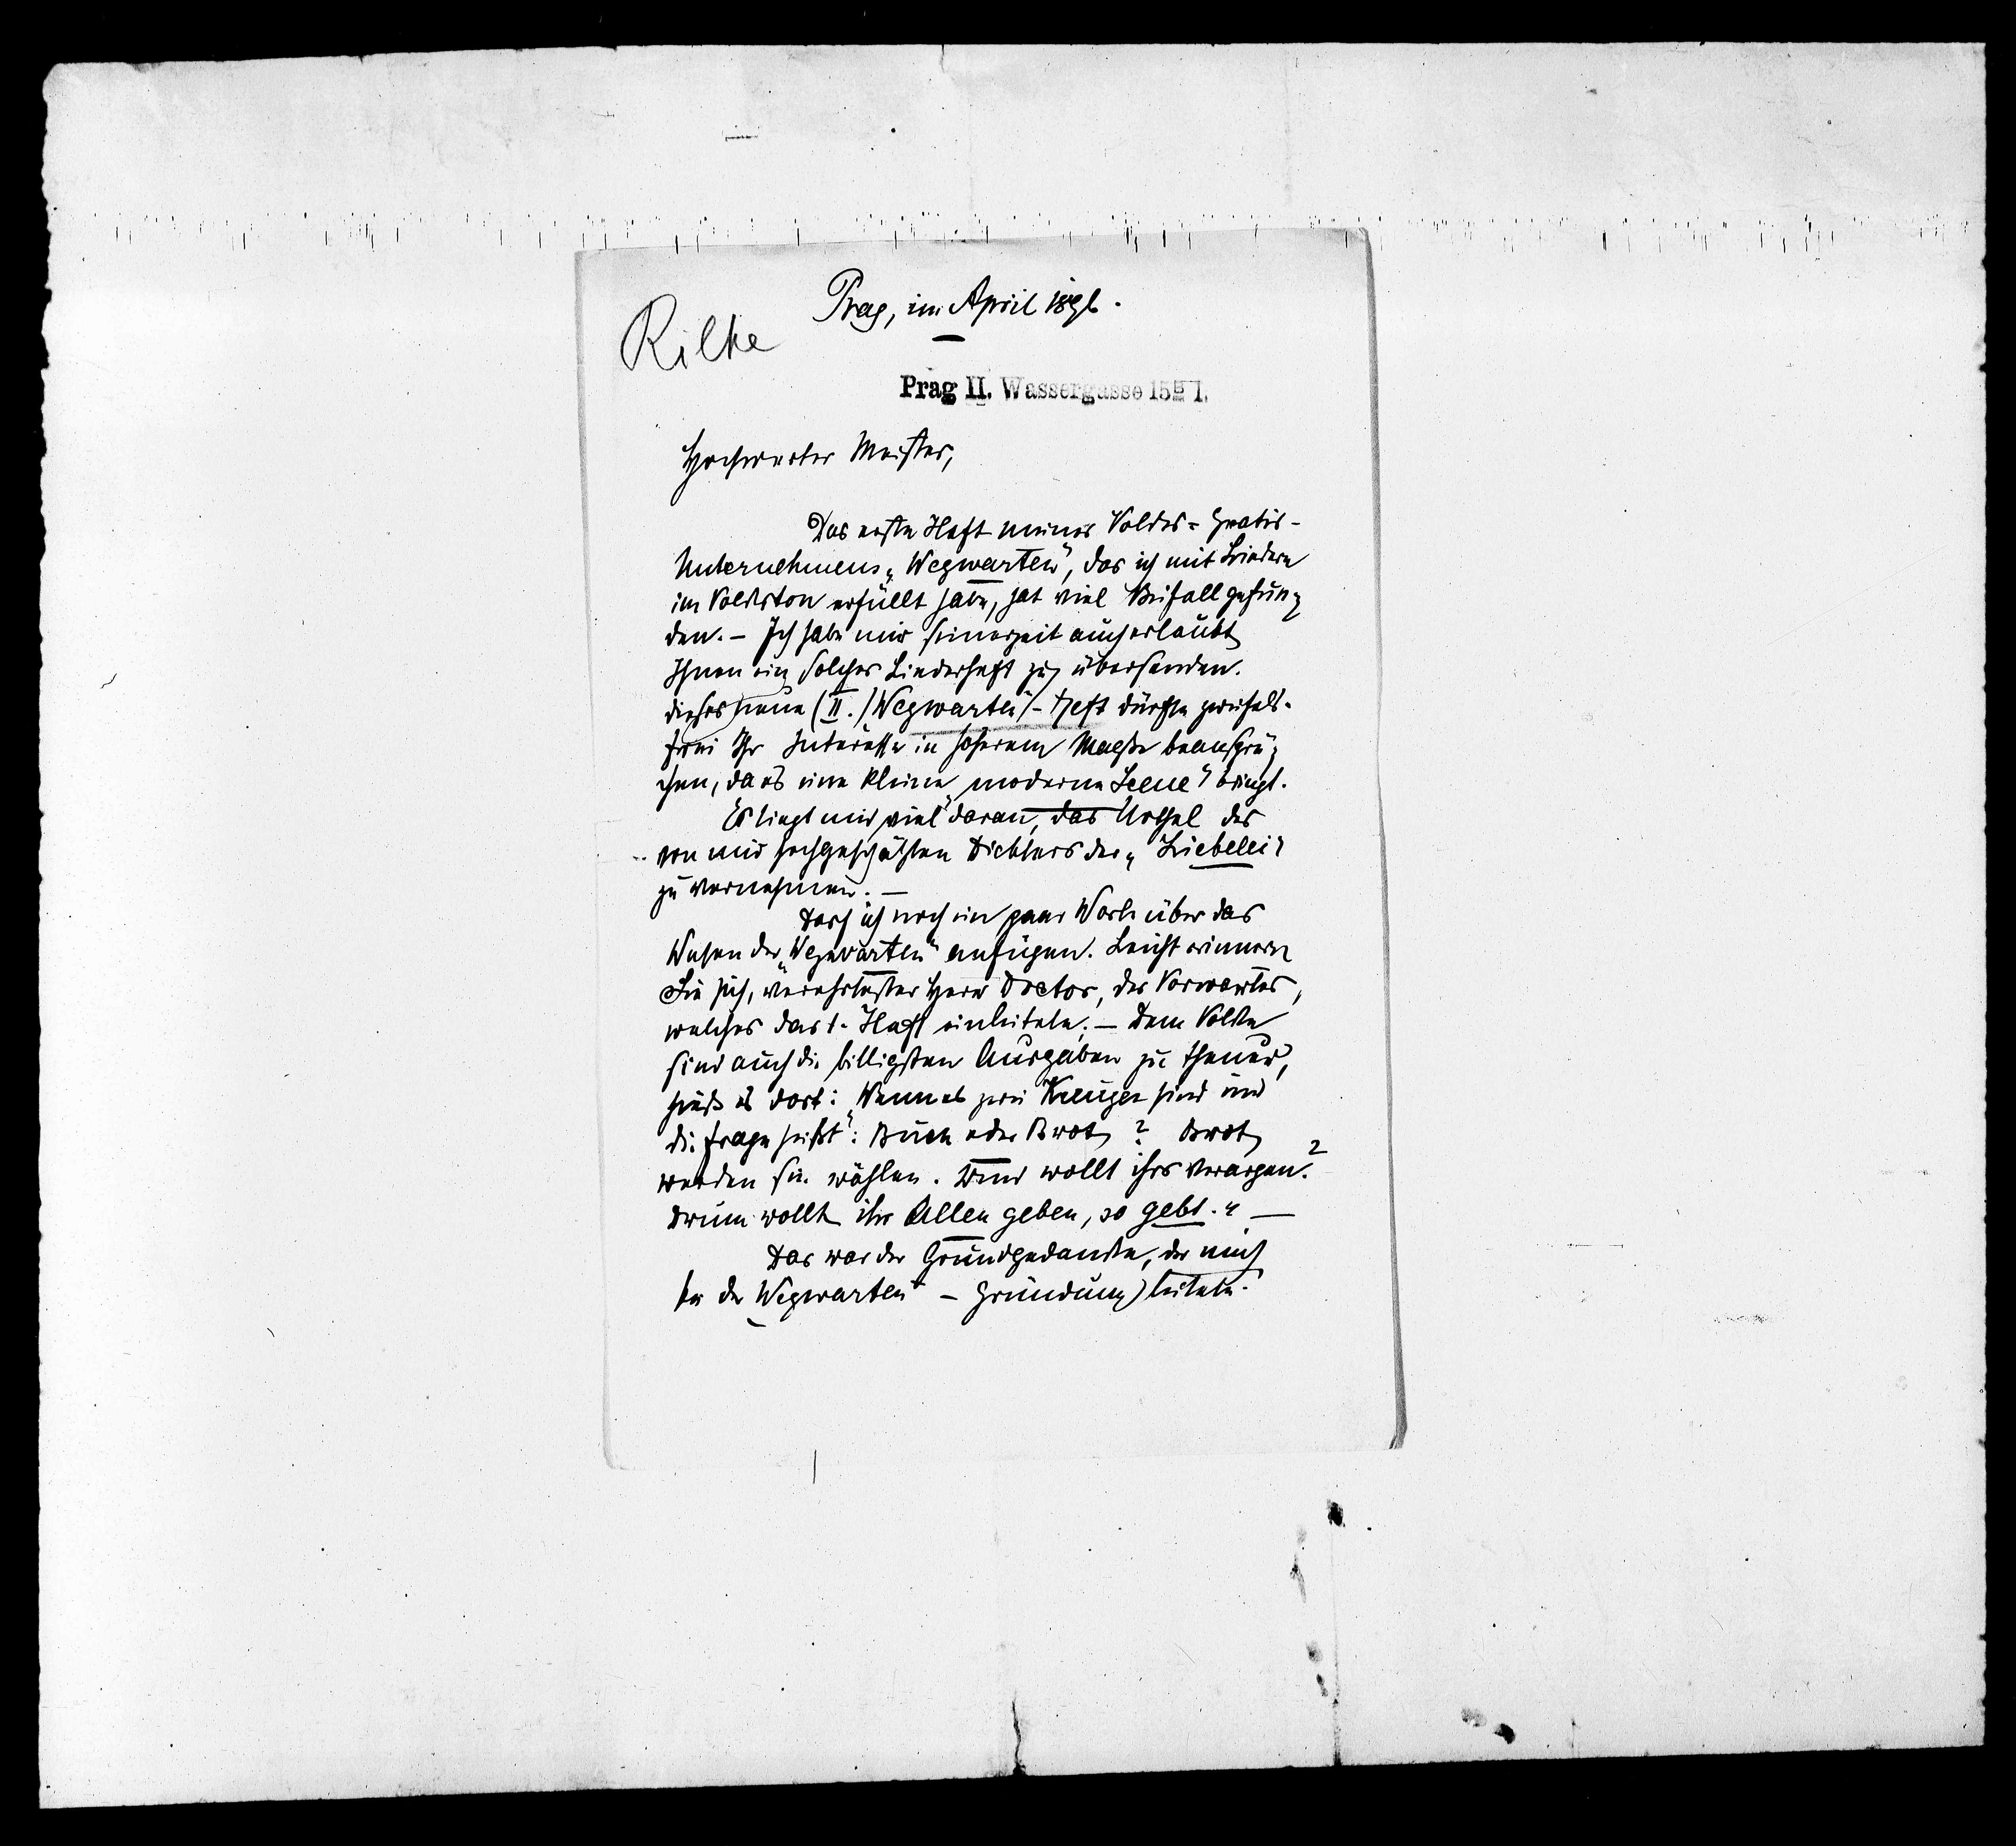 Prag, im April 1896.
Rilke
Prag II. Wassergasse 15B I.
Hochwerter Meister,
Das erste Heft meines Volks-Gratis-
Unternehmens „Wegwarten", das ich mit Liedern
im Volkston erfüllt habe, hat viel Beifall gefun-
den. – Ich habe mir seinerzeit auch erlaubt
Ihnen ein solches Liederheft zu übersenden.
dieses neue (II.) „Wegwarten"-Heft dürfte zweifels-
frei Ihr Interesse in höherem Maße beanspru-
chen, da es eine kleine „moderne Scene" bringt.
Es liegt mir viel daran, das Urtheil des
von mir hochgeschätzten Dichters der „Liebelei"
zu vernehmen. –
Darf ich noch ein paar Worte über das
Wesen der „Wegwarten" anfügen. Leicht erinnern
Sie sich, verehrtester Herr Doctor, des Vorwortes,
welches das 1. Heft einleitete. – Dem Volke
sind auch die billigsten Ausgaben zu theuer,
hieß es dort: „Wenn es zwei Kreuzer sind und
die Frage heißt: Buch oder Brot? Brot
werden sie wählen. Und wollt ihrs verargen?
Drum wollt ihr Allen geben, so gebt." –
Das war der Grundgedanke, der mich
bei der „Wegwarten" – Gründung leitete.